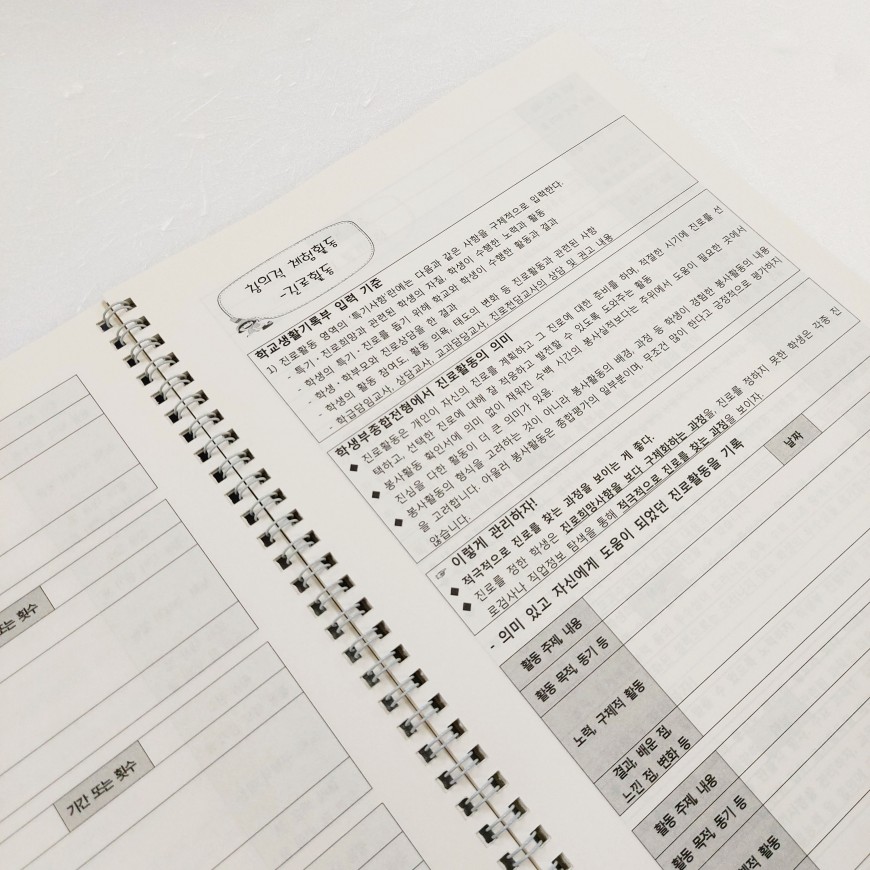 또는 횟수
기간 또는 횟수
창의적 체험활동
-진로활동
학교생활기록부 입력 기준
1) 진로활동 영역의 '특기사항'란에는 다음과 같은 사항을 구체적으로 입력한다.
- 특기·진로희망과 관련된 학생의 자질, 학생이 수행한 노력과 활동
- 학생의 특기·진로를 돕기 위해 학교와 학생이 수행한 활동과 결과
- 학생·학부모와 진로상담을 한 결과
- 학생의 활동 참여도, 활동 의욕, 태도의 변화 등 진로활동과 관련된 사항
- 학급담임교사, 상담교사, 교과담당교사, 진로전담교사의 상담 및 권고 내용
학생부종합전형에서 진로활동의 의미
◆ 진로활동은 개인이 자신의 진로를 계획하고 그 진로에 대한 준비를 하며, 적절한 시기에 진로를 선
택하고, 선택한 진로에 대해 잘 적응하고 발전할 수 있도록 도와주는 활동
◆ 봉사활동 확인서에 의미 없이 채워진 수백 시간의 봉사실적보다는 주위에서 도움이 필요한 곳에서
진심을 다한 활동이 더 큰 의미가 있음.
◆ 봉사활동의 형식을 고려하는 것이 아니라 봉사활동의 배경, 과정 등 학생이 경험한 봉사활동의 내용
을 고려합니다. 아울러 봉사활동은 종합평가의 일부분이며, 무조건 많이 한다고 긍정적으로 평가하지
않습니다.
☞ 이렇게 관리하자!
◆ 적극적으로 진로를 찾는 과정을 보이는 게 좋다.
◆ 진로를 정한 학생은 진로희망사항을 보다 구체화하는 과정을, 진로를 정하지 못한 학생은 각종 진
로검사나 직업정보 탐색을 통해 적극적으로 진로를 찾는 과정을 보이자.
- 의미 있고 자신에게 도움이 되었던 진로활동을 기록
활동 주제, 내용
날짜
활동 목적, 동기 등
노력, 구체적 활동
결과, 배운 점,
느낀 점, 변화 등
활동 주제, 내용
활동 목적, 동기 등
구체적 활동